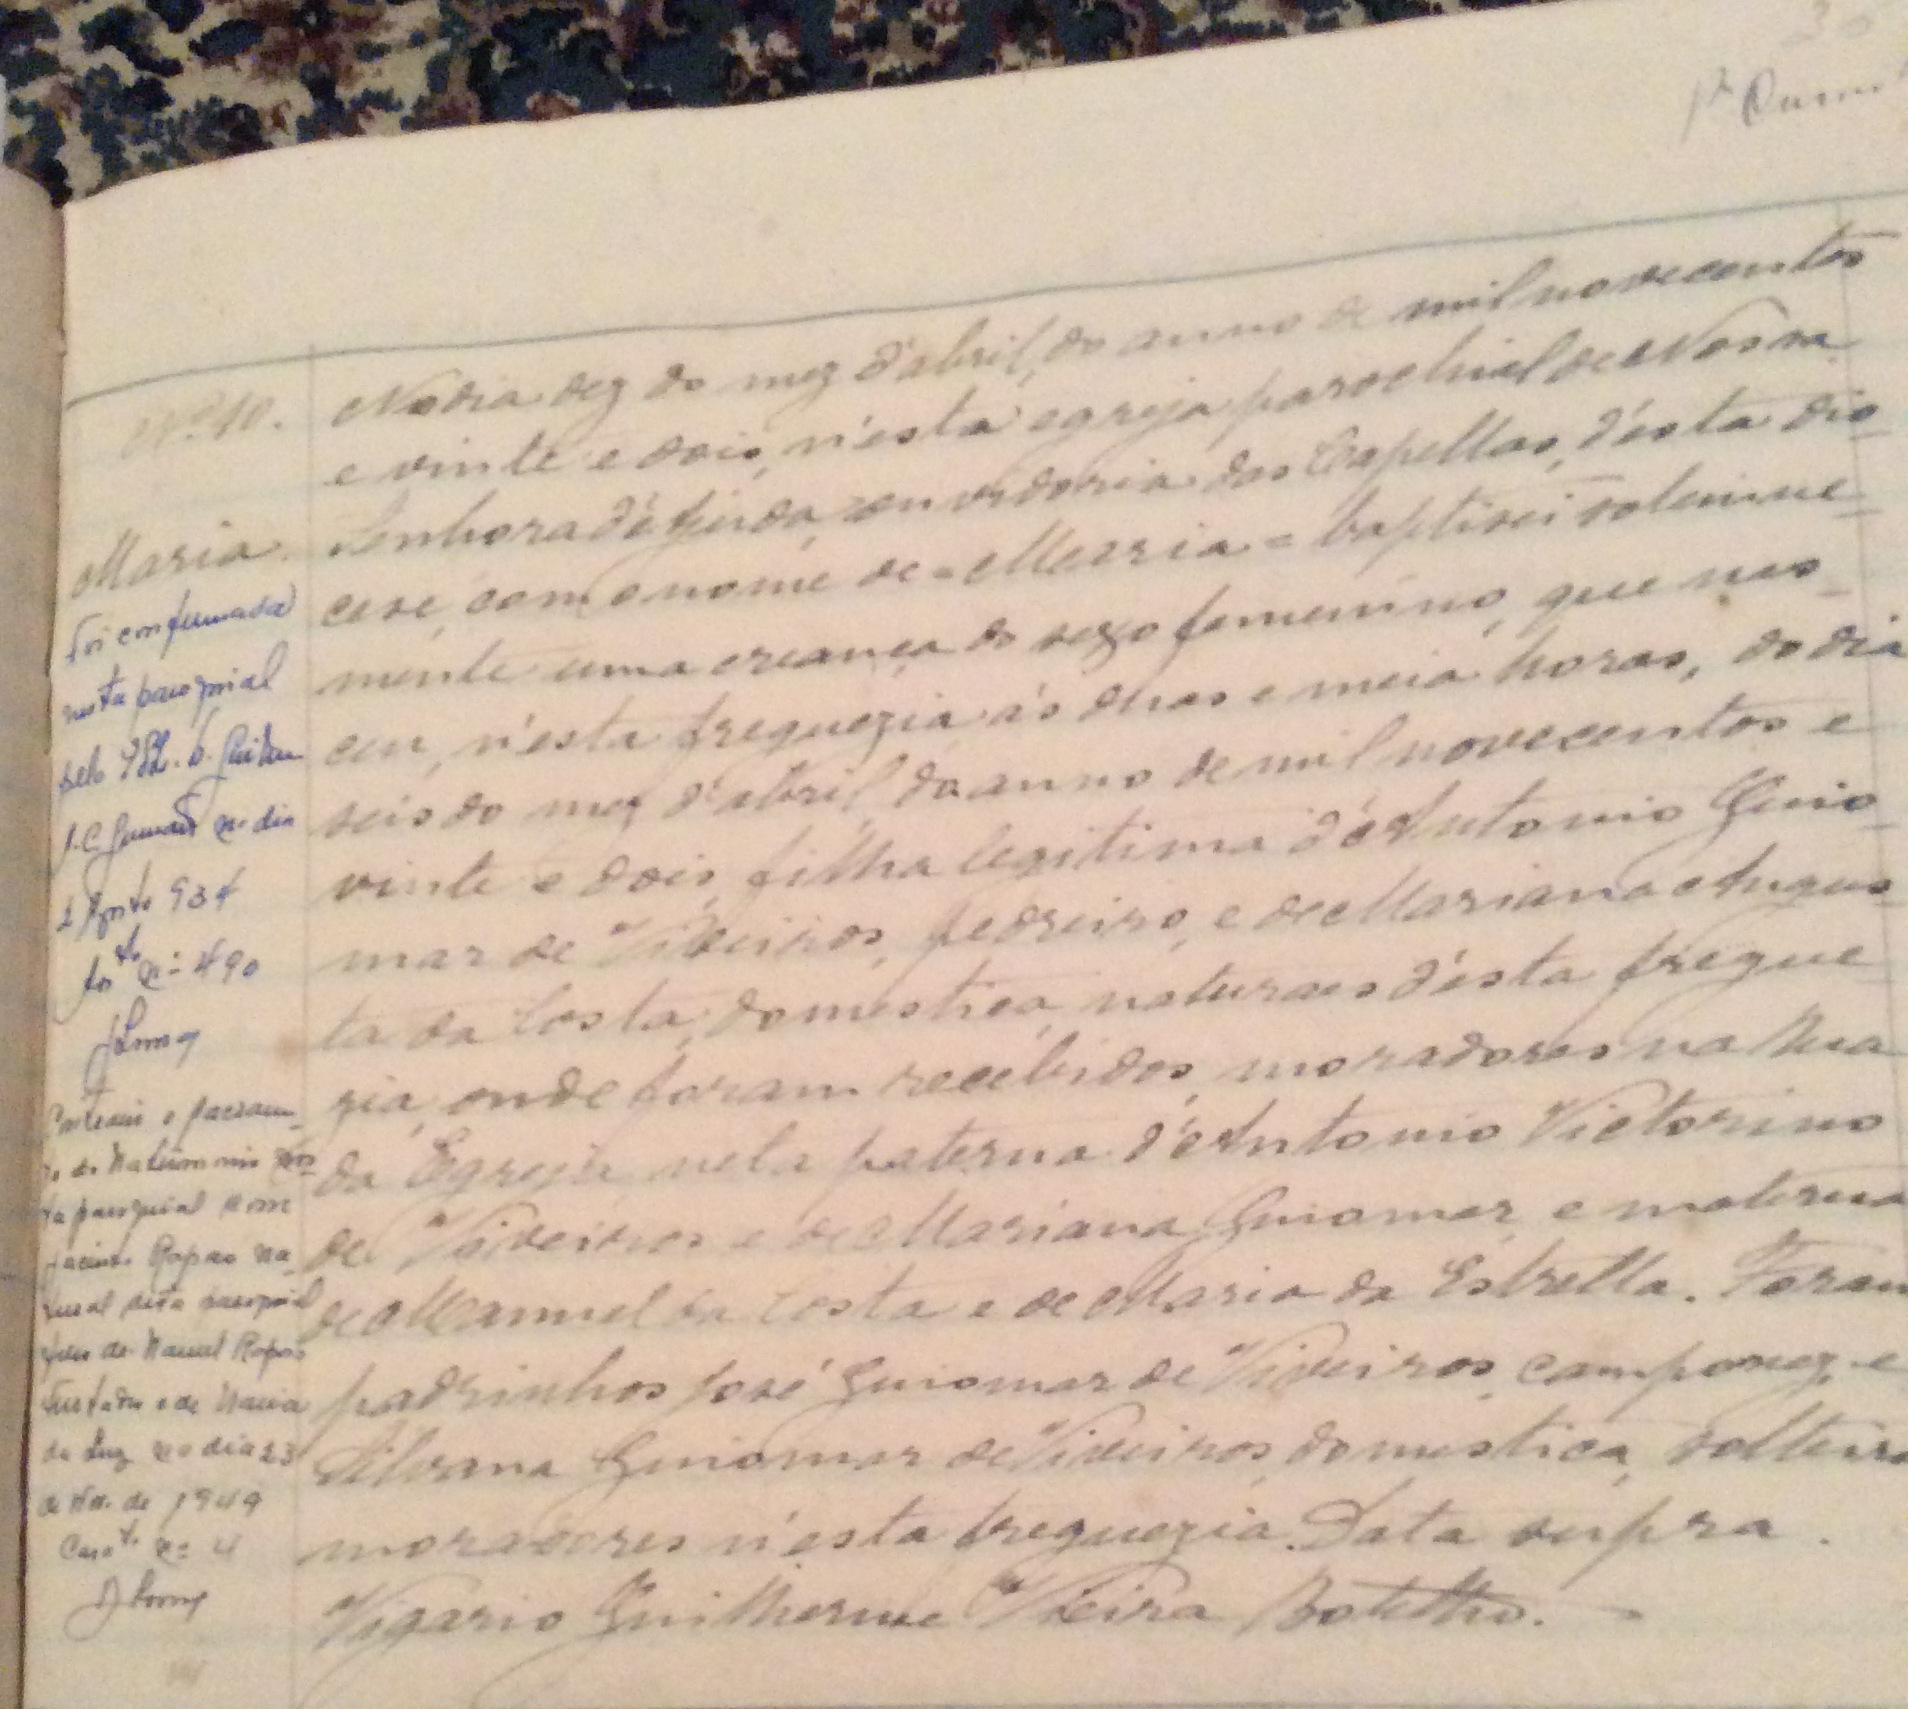 30
Nº 10.
Maria.
Foi confirmada
nesta paroquial
pelo
no dia
2 Agosto 934
nº 490
nº
de Matrimonio
ta paroquial com
Jacinto Raposo na-
tural desta paroquial
filho de Manuel Raposo
Furtado e de Maria
da Luz no dia 23
de Nov. de 1949
nº 4
No dia dez do mez d'abril, do anno de mil novecentos
e vinte e dois, n'esta egreja parochial de Nossa
Senhora d'Ajuda, ouvidoria das Capellas, d'esta dio-
cese, com o nome de = Maria = baptisei solemne-
mente uma creança do sexo femenino, que nas-
ceu, n'esta freguezia ás duas e meia horas, do dia
seis do mez d'abril, do anno de mil novecentos e
vinte e dois, filha legitima d'Antonio Guio-
mar de Viveiros, pedreiro, e de Marianna Augus-
ta da Costa, domestica, naturaes d'esta fregue-
zia, onde foram recebidos, moradores na Rua
da Egreja, neta paterna d'Antonio Victorino
de Viveiros e de Mariana Guiomar, e materna
de Manuel da Costa e de Maria da Estrella. Foram
padrinhos José Guiomar de Viveiros, camponez, e
Silvana Guiomar de Viveiros, domestica, solteira
moradores n'esta freguezia. Data supra.
Vigario Guilherme Vieira Botelho.